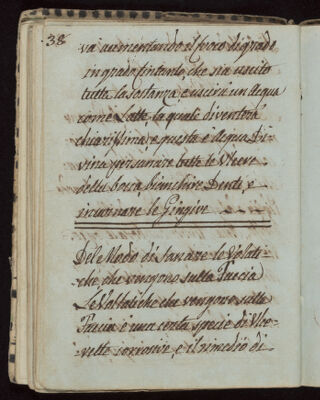 38
và aumentando il foco di grado
in grado fintanto, che sia uscito
tutta la sostanza, e uscirà un'acqua
come Latte la quale diventerà
chiarissima, e questa è l'Acqua Di-
vina per sanare tutte le Ulcere
della bocca, bianchire Denti, e
incarnare le Gengive
Del Modo di sanare le Volati-
che che vengono sulla Faccia
Le Volatiche che vengono sulla
Faccia è una certa specie di Ulce-
rette corrosive, e il rimedio di